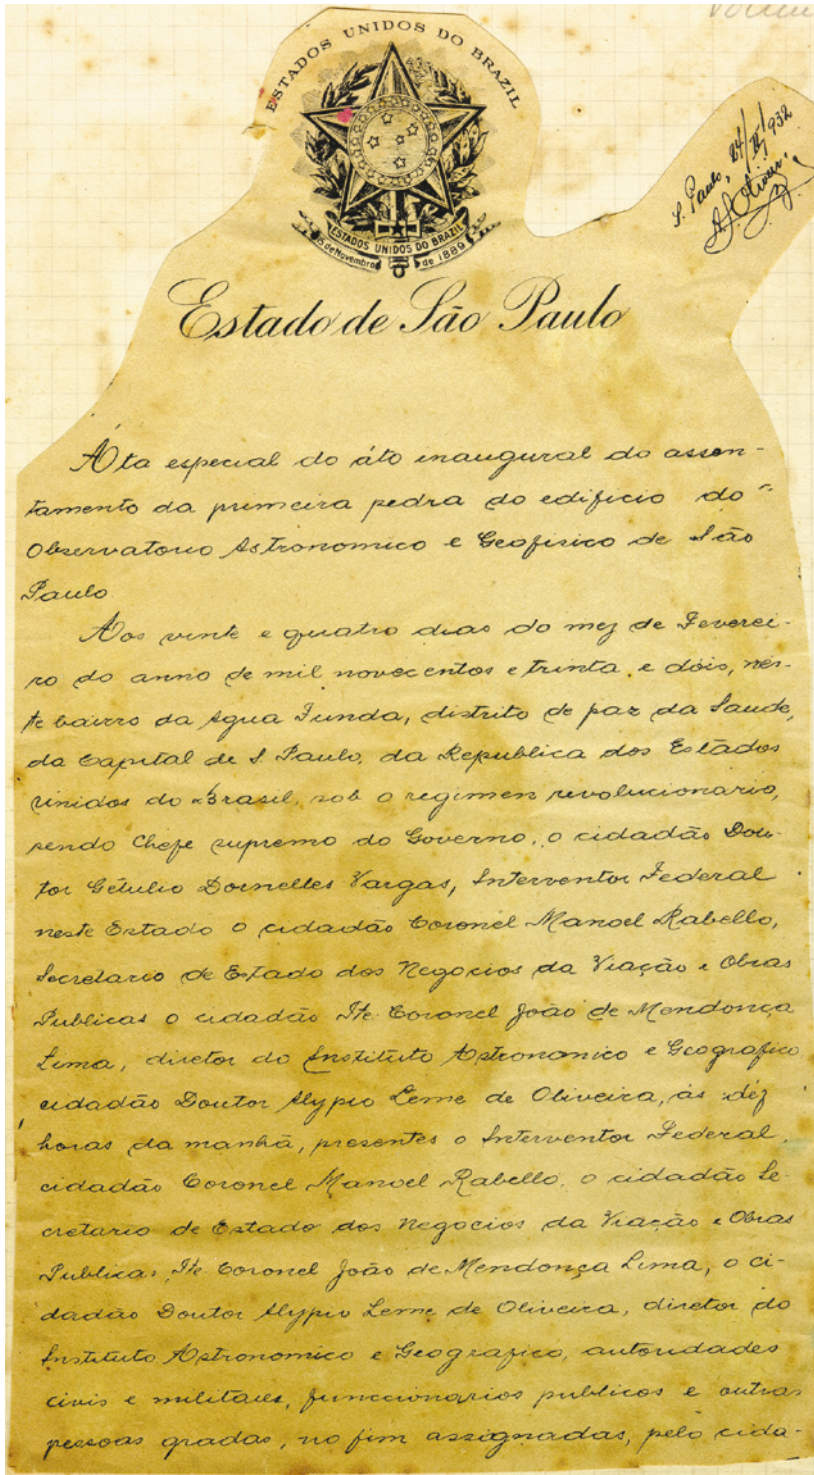 ESTADOS UNIDOS DO BRAZIL
S. Paulo, 24/II/932
ESTADOS UNIDOS DO BRAZIL
15 de Novembro de 1889
Estado de São Paulo
Áta especial do áto inaugural do assen-
tamento da primeira pedra do edificio do
Observatorio Astronomico e Geofisico de São
Paulo
Aos vinte e quatro dias do mez de Feverei-
ro do anno de mil novecentos e trinta e dois, nes-
te bairro da Agua Funda, distrito de paz da Saude,
da Capital de S. Paulo, da Republica dos Estados
Unidos do Brasil, sob o regimen revolucionario,
sendo Chefe supremo do Governo, o cidadão Dou-
tor Getulio Dornelles Vargas, Interventor Federal
neste Estado o cidadão Coronel Manoel Rabello,
Secretario de Estado dos Negocios da Viação e Obras
Publicas o cidadão Tte. Coronel João de Mendonça
Lima, diretor do Instituto Astronomico e Geografico
cidadão Doutor Alypio Leme de Oliveira, ás déz
horas da manhã, presentes o Interventor Federal,
cidadão Coronel Manoel Rabello, o cidadão Se-
cretario de Estado dos Negocios da Viação e Obras
Publicas, Tte. Coronel João de Mendonça Lima, o ci-
dadão Doutor Alypio Leme de Oliveira, diretor do
Instituto Astronomico e Geografico, autoridades
civis e militares, funccionarios publicos e outras
pessoas gradas, no fim assignadas, pelo cida-